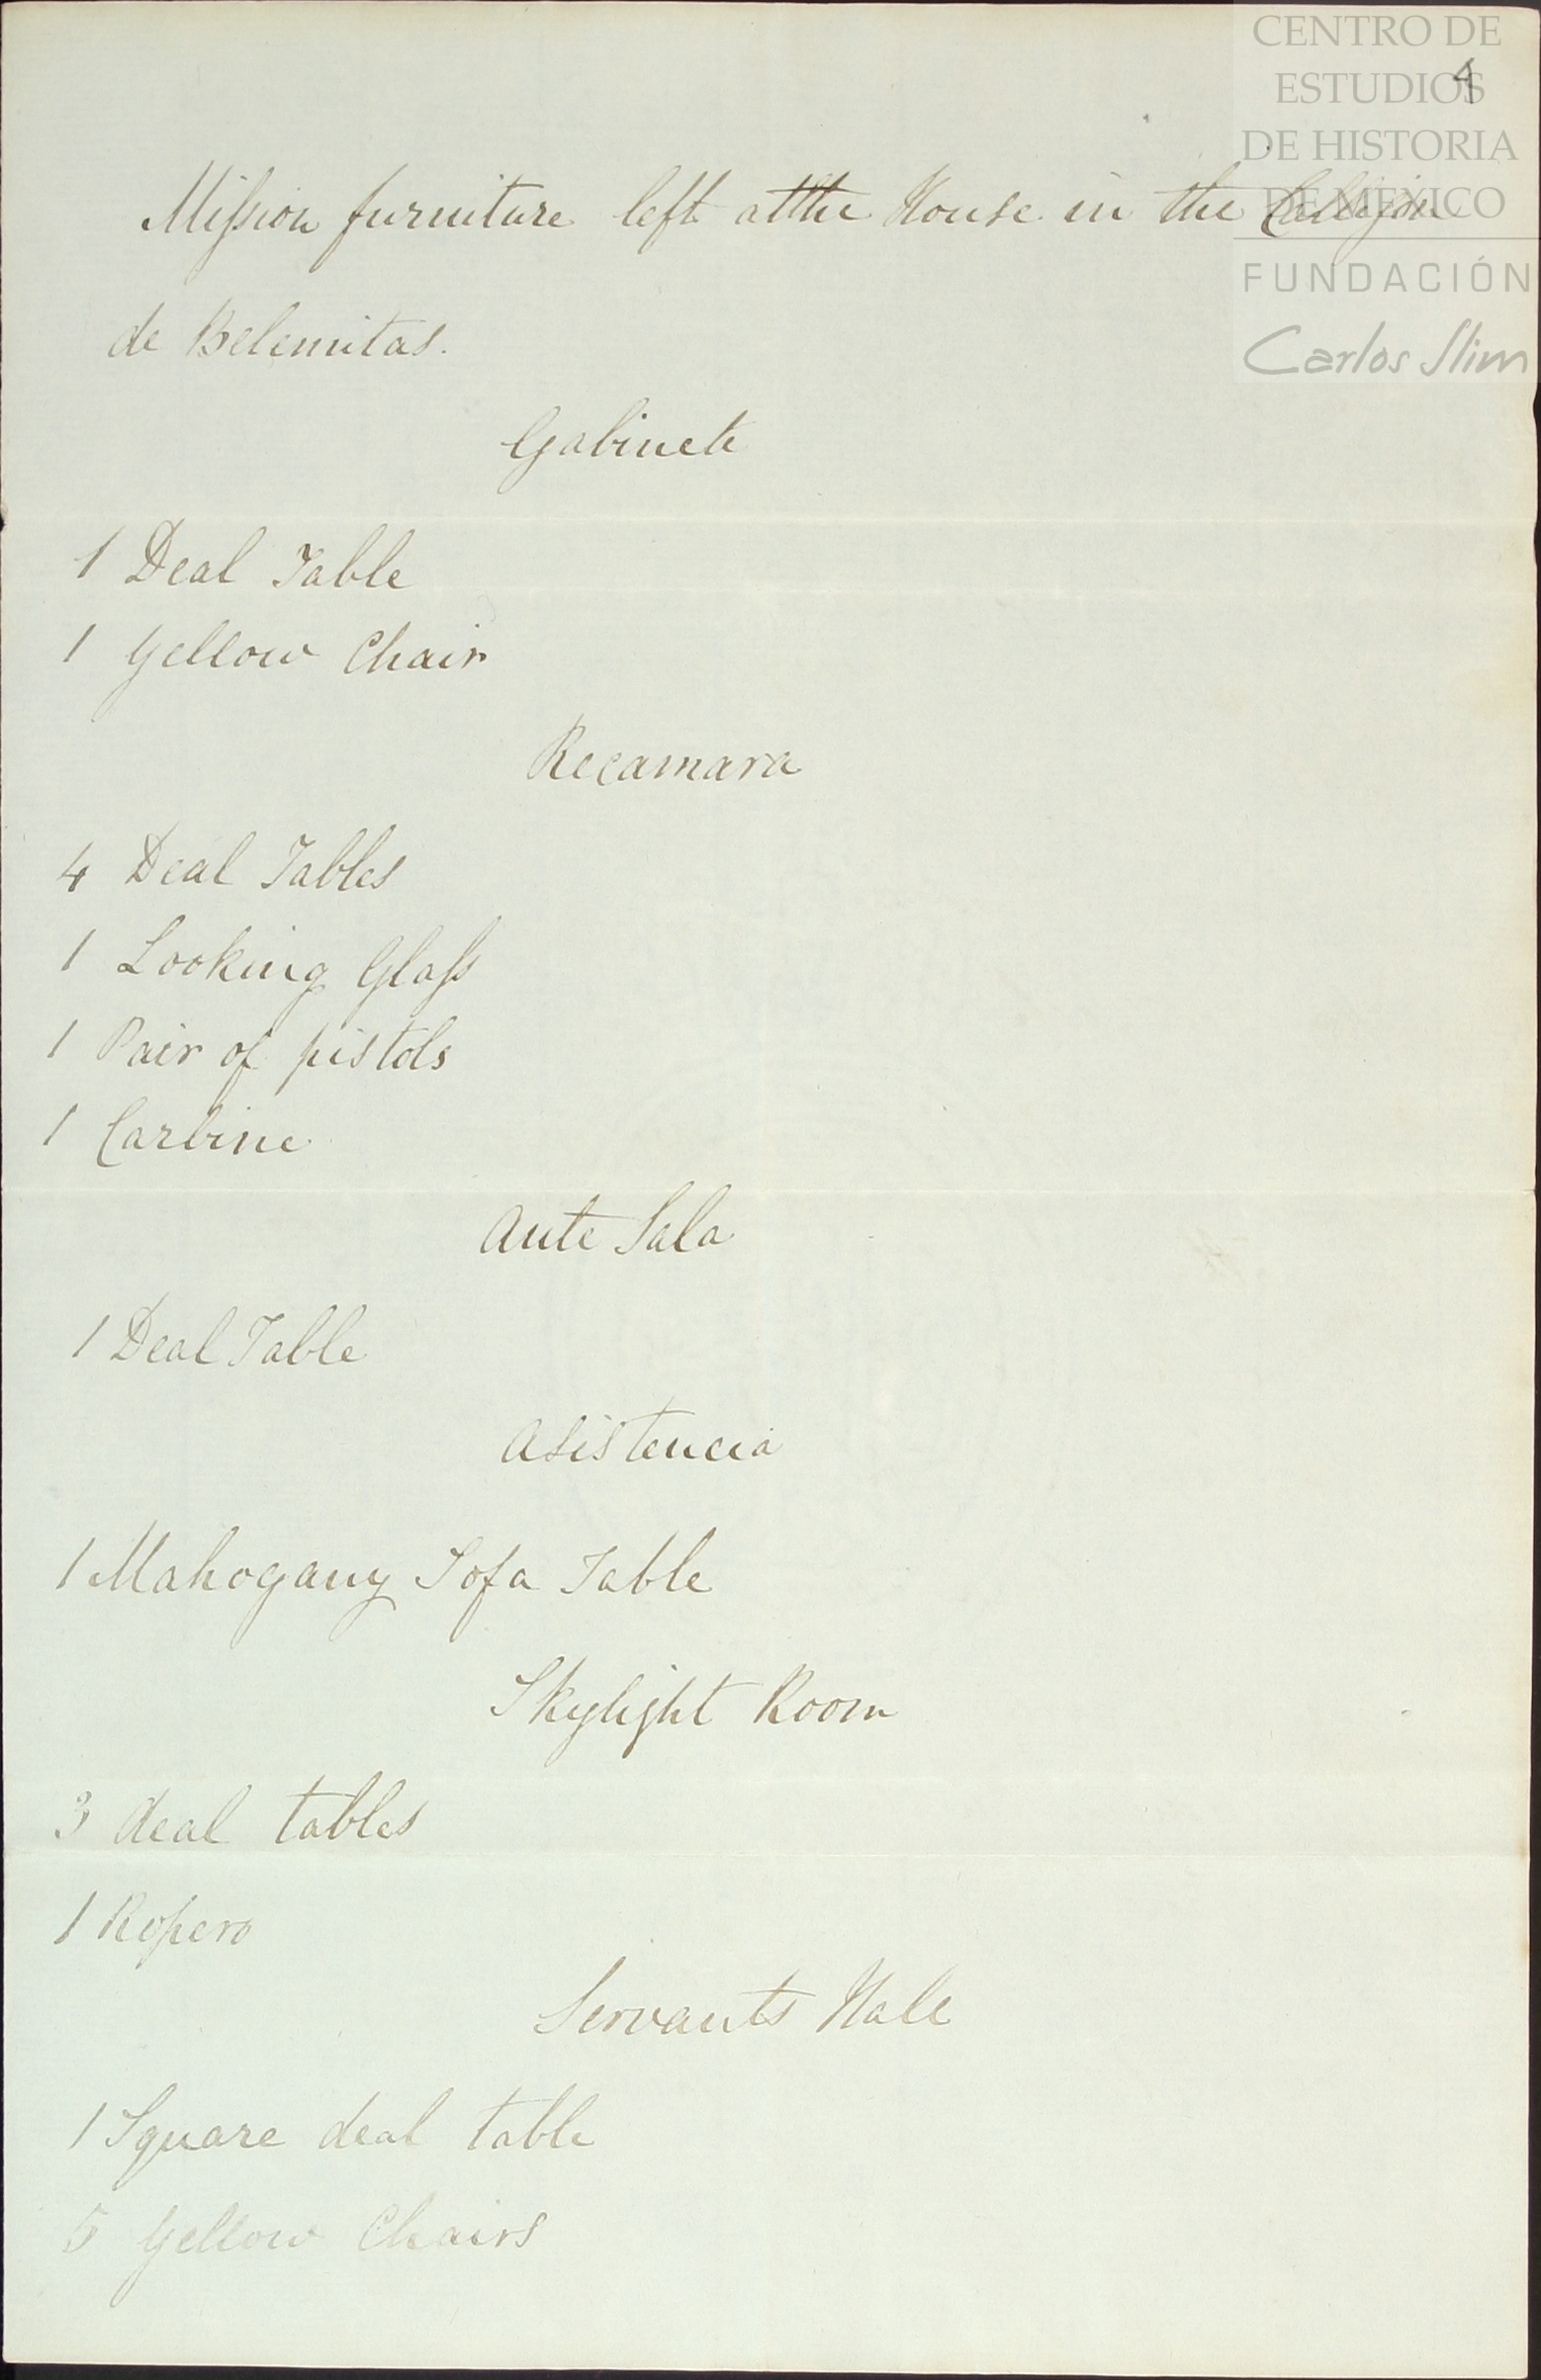 CENTRO DE
ESTUDIOS
DE HISTORIA
DE MÉXICO
FUNDACIÓN
Carlos Slim
4
Mission furniture left at the House in the Callejon
de Belemitas.
Gabinete
1 Deal Table
1 Yellow Chair
Recamara
4 Deal Tables
1 Looking Glass
1 Pair of pistols
1 Carbine
Ante Sala
1 Deal Table
Asistencia
1 Mahogany Sofa Table
Skylight Room
3 deal tables
1 Ropero
Servants Hall
1 Square deal table
5 Yellow Chairs